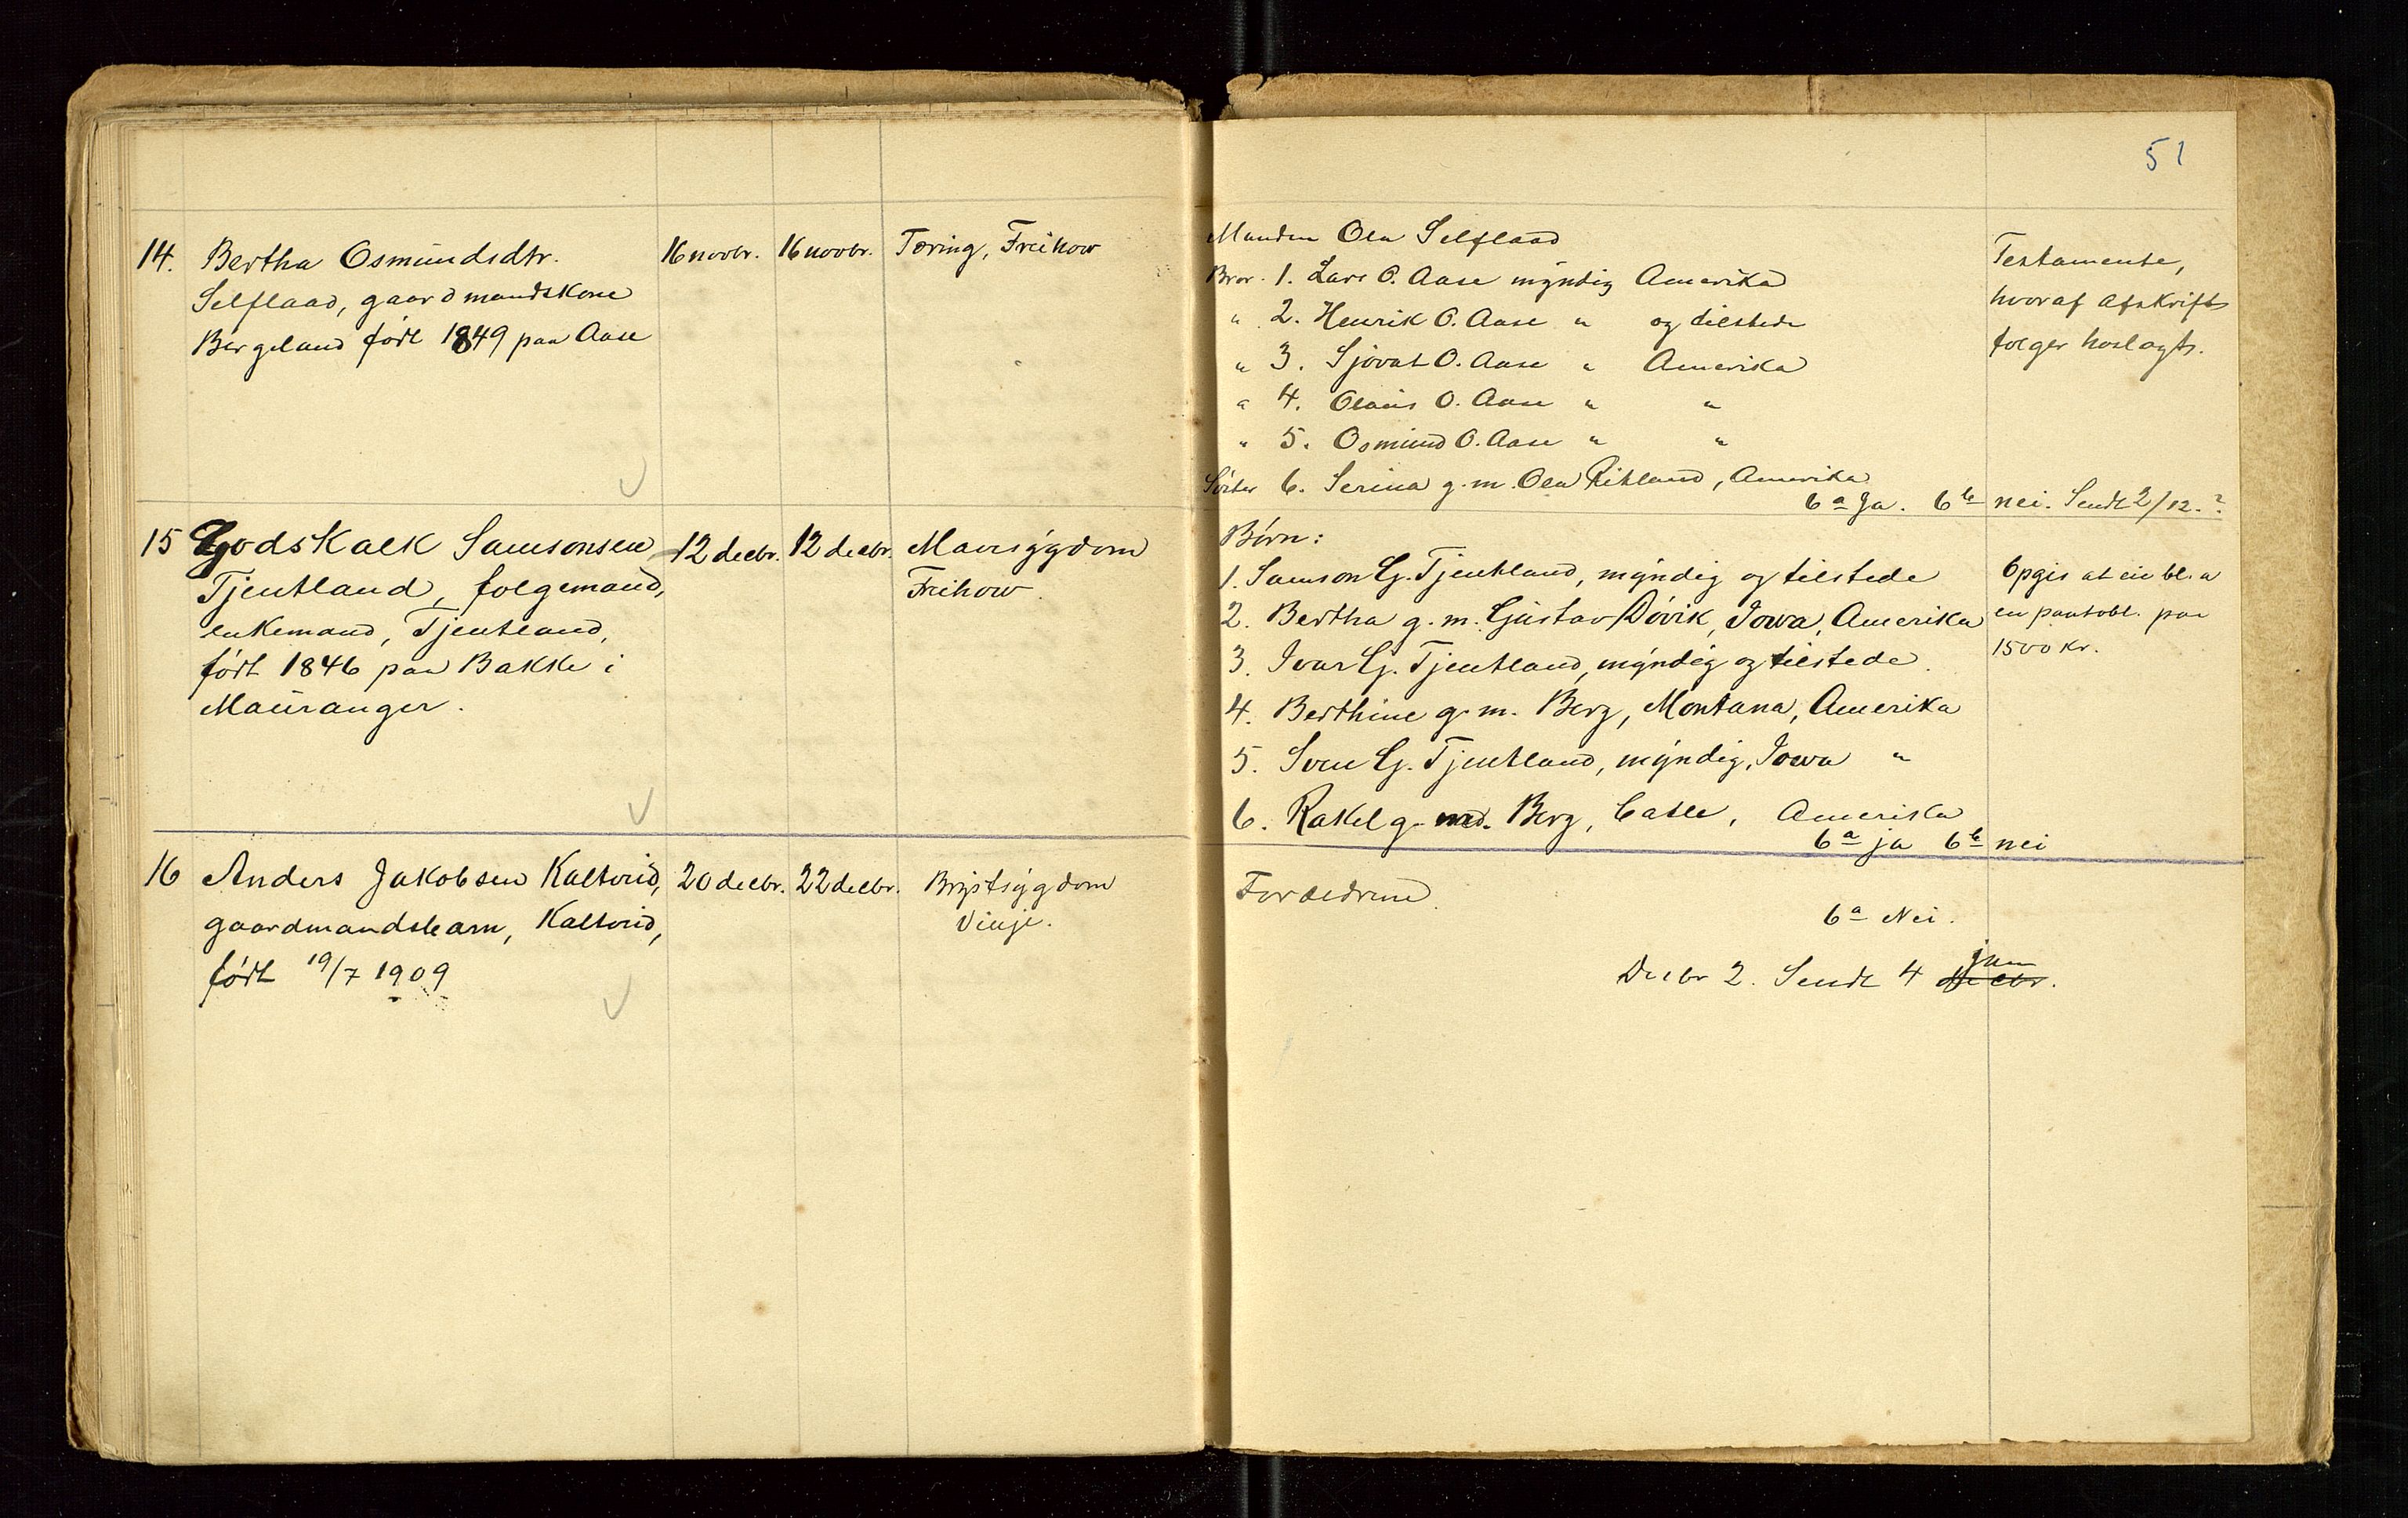 51
14. Bertha Osmundsdtr. 16 novbr. 16 novbr. Tæring, Freihow
Selflaad, gaardmandskone
Bergeland født 1849 paa Aase
Manden Ola Selflaad
Bror 1. Lars O. Aase myndig Amerika
" 2. Henrik O. Aase " og tilstede
" 3. Sjovat O. Aase " Amerika
" 4. Olaus O. Aase " "
" 5. Osmund O. Aase " "
Søster 6. Serina g. m. Ola Rikland, Amerika
6a Ja. 6b nei. Sendt 2/12.?
Testamente,
hvoraf afskrift
følger hoslagt.
15 Godskalk Samsonsen 12 decbr. 12 decbr. Mavesygdom
Tjentland, følgemand, Freihow.
enkemand, Tjentland,
født 1846 paa Bakke i
Mauranger.
Børn:
1. Samson G. Tjentland, myndig og tilstede
2. Bertha g. m. Gustav Døvik, Iowa, Amerika
3. Ivar G. Tjentland, myndig og tilstede.
4. Berthine g. m. Berg, Montana, Amerika
5. Sven G. Tjentland, myndig, Iowa "
6. Rakel g. med. Berg, , Amerika
6a ja 6b nei
Opgis at eie bl. a
en pantobl. paa
1500 kr.
16 Anders Jakobsen Kaltveid, 20 decbr. 22 decbr. Brystsygdom
gaardmandsbarn, Kaltveid, Vinje.
født 19/7 1909
Forældrene.
6a Nei.
jan
Decbr 2. Sendt 4 decbr.